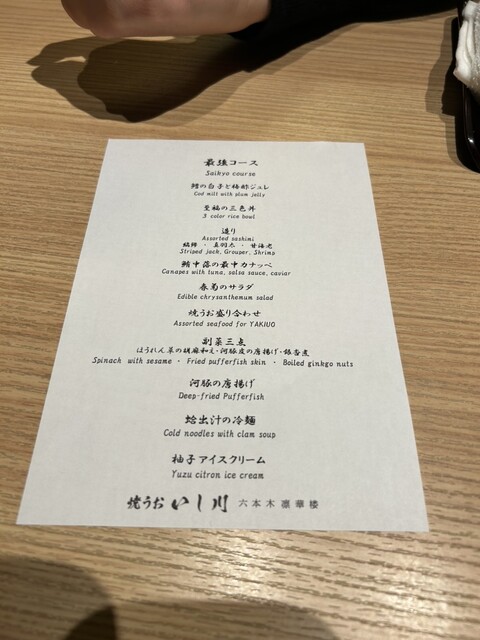 最強コース
Saikyo course
鱈の白子と梅酢ジュレ
Cod milt with plum jelly
至福の三色丼
3 color rice bowl
造り
Assorted sashimi
縞鯵 ・ 真羽太 ・ 甘海老
Striped jack, Grouper, Shrimp
鮪中落の最中カナッペ
Canapes with tuna, salsa sauce, caviar
春菊のサラダ
Edible chrysanthemum salad
焼うお盛り合わせ
Assorted seafood for YAKIUO
副菜三点
ほうれん草の胡麻和え・河豚皮の唐揚げ・銀杏煮
Spinach with sesame ・ Fried pufferfish skin ・ Boiled ginkgo nuts
河豚の唐揚げ
Deep-fried Pufferfish
蛤出汁の冷麺
Cold noodles with clam soup
柚子アイスクリーム
Yuzu citron ice cream
焼うお いし川 六本木凛華楼